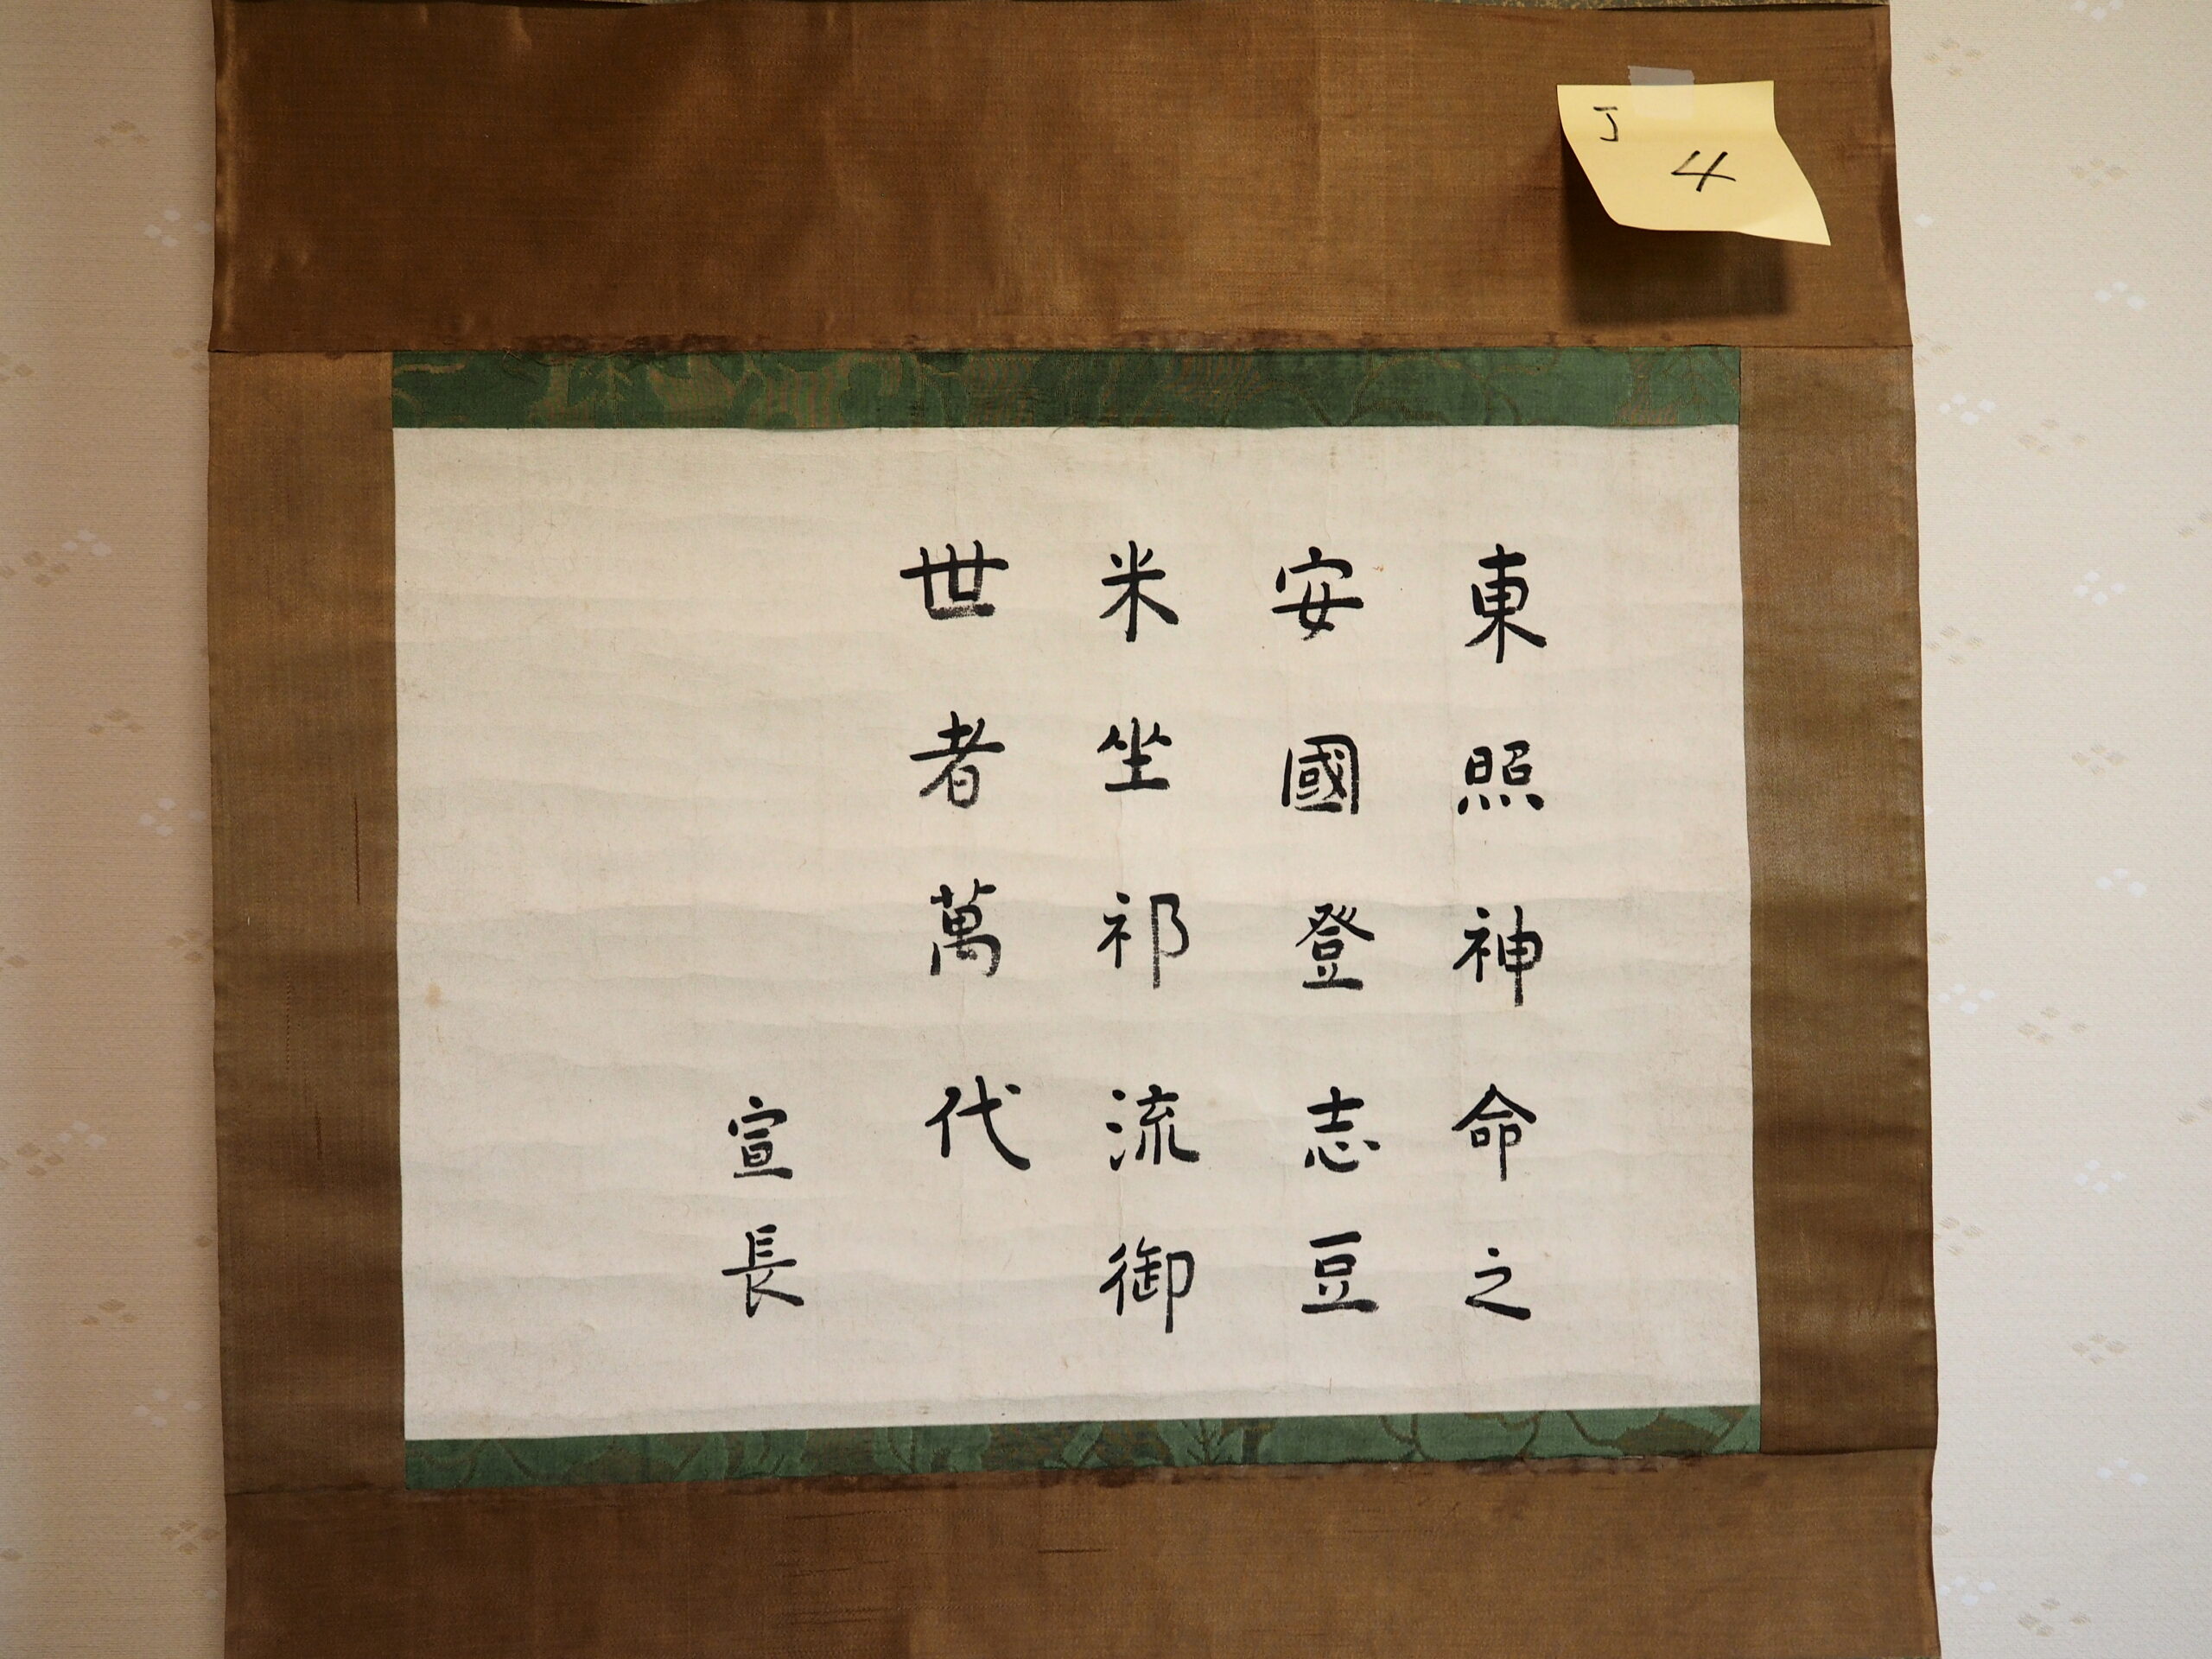 東照神命之
安國登志豆
米坐祁流御
世者萬代
宣長
J
4